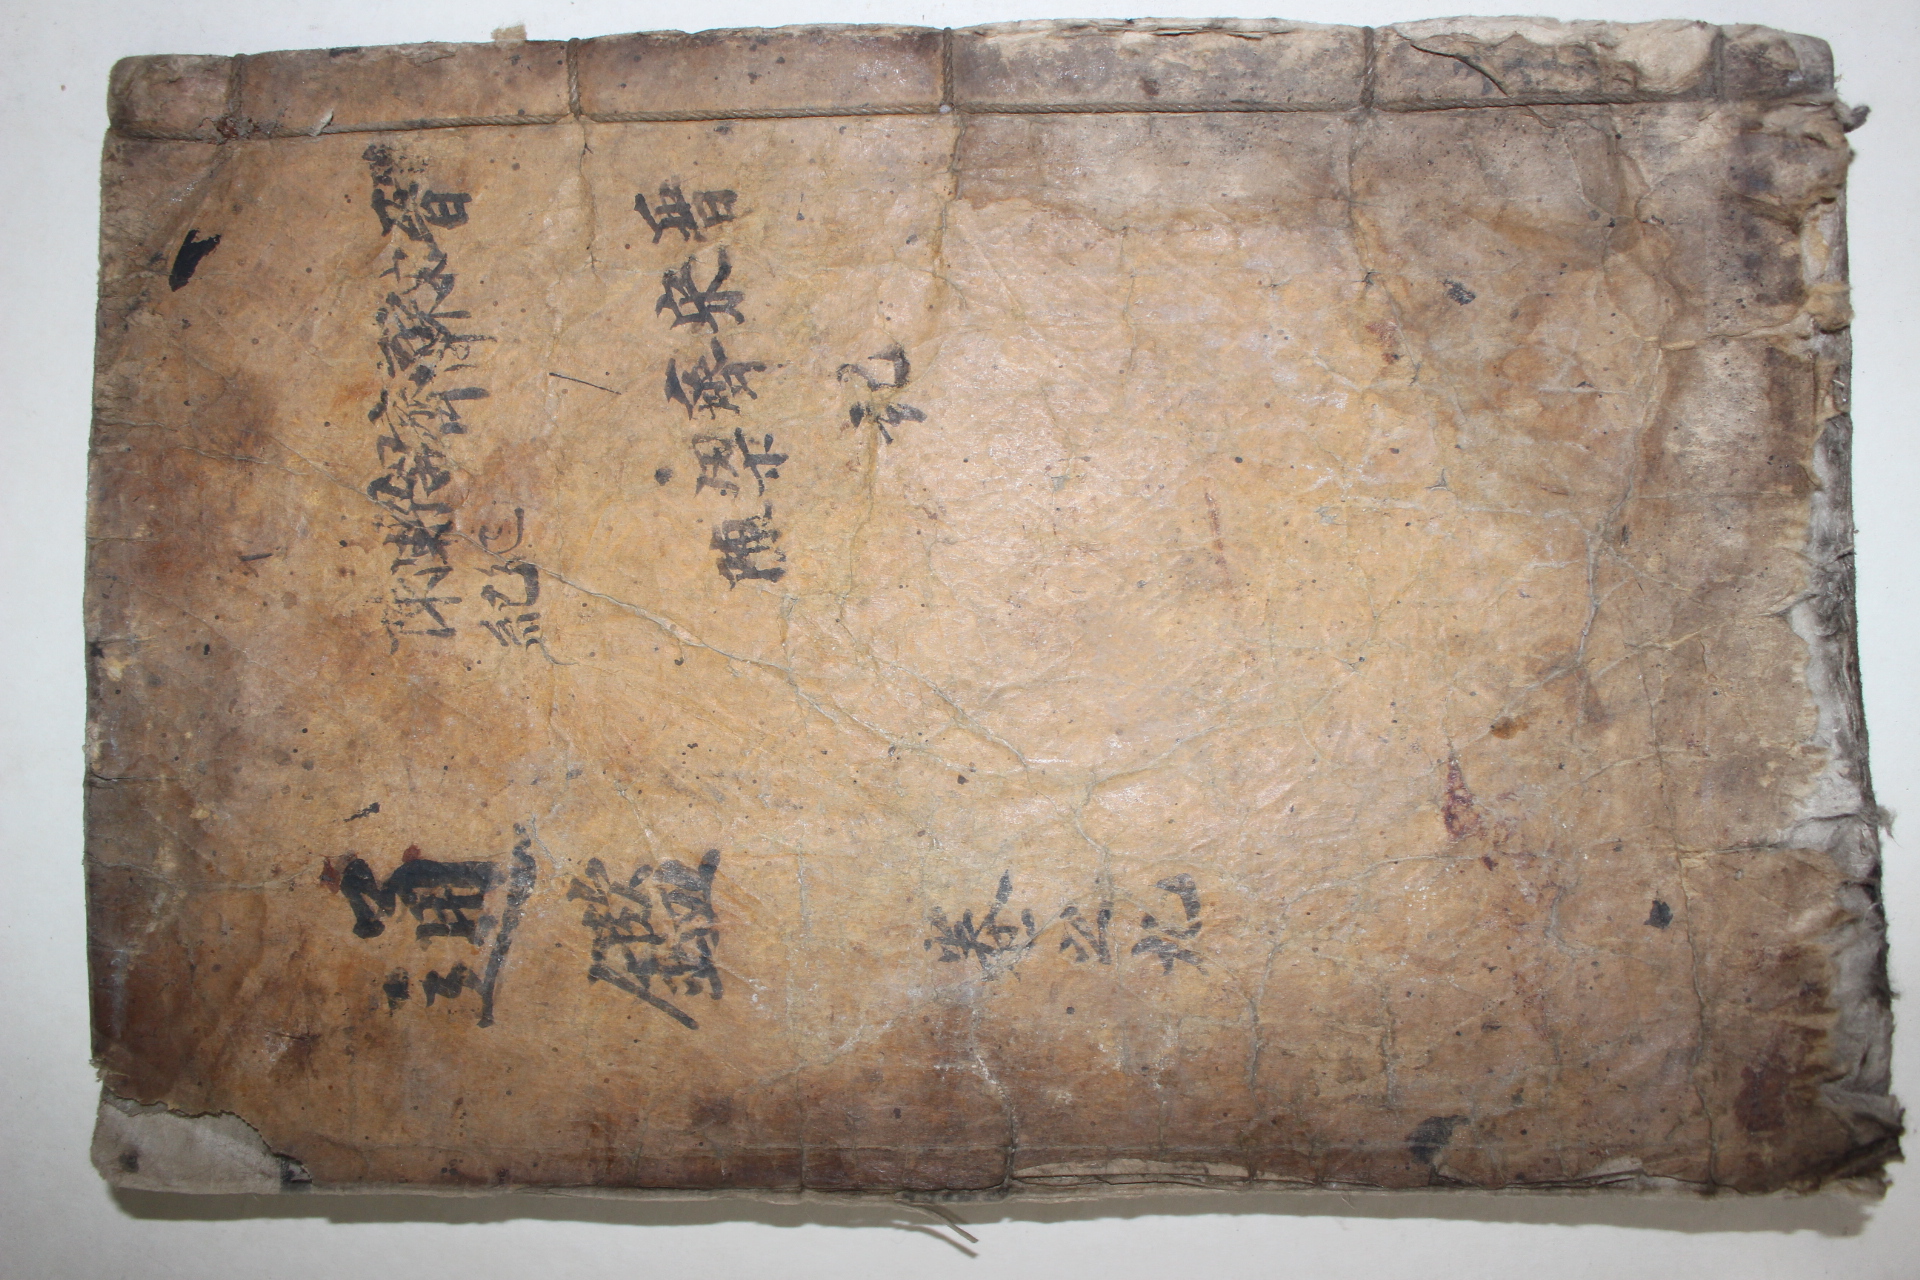 晉宋齊梁陳
紀
晋宋齊梁陳
記
通鑑 卷之九